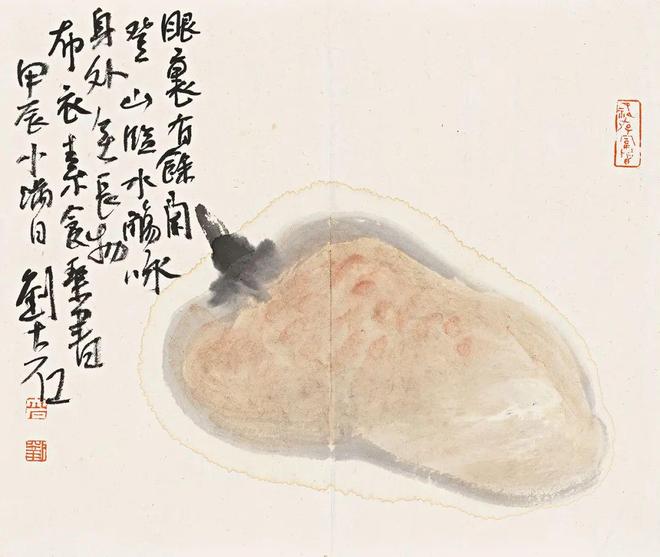 眼裏有餘閑
登山臨水觴咏
身外無長物
布衣素食琴書
甲辰小滿日 劉大石